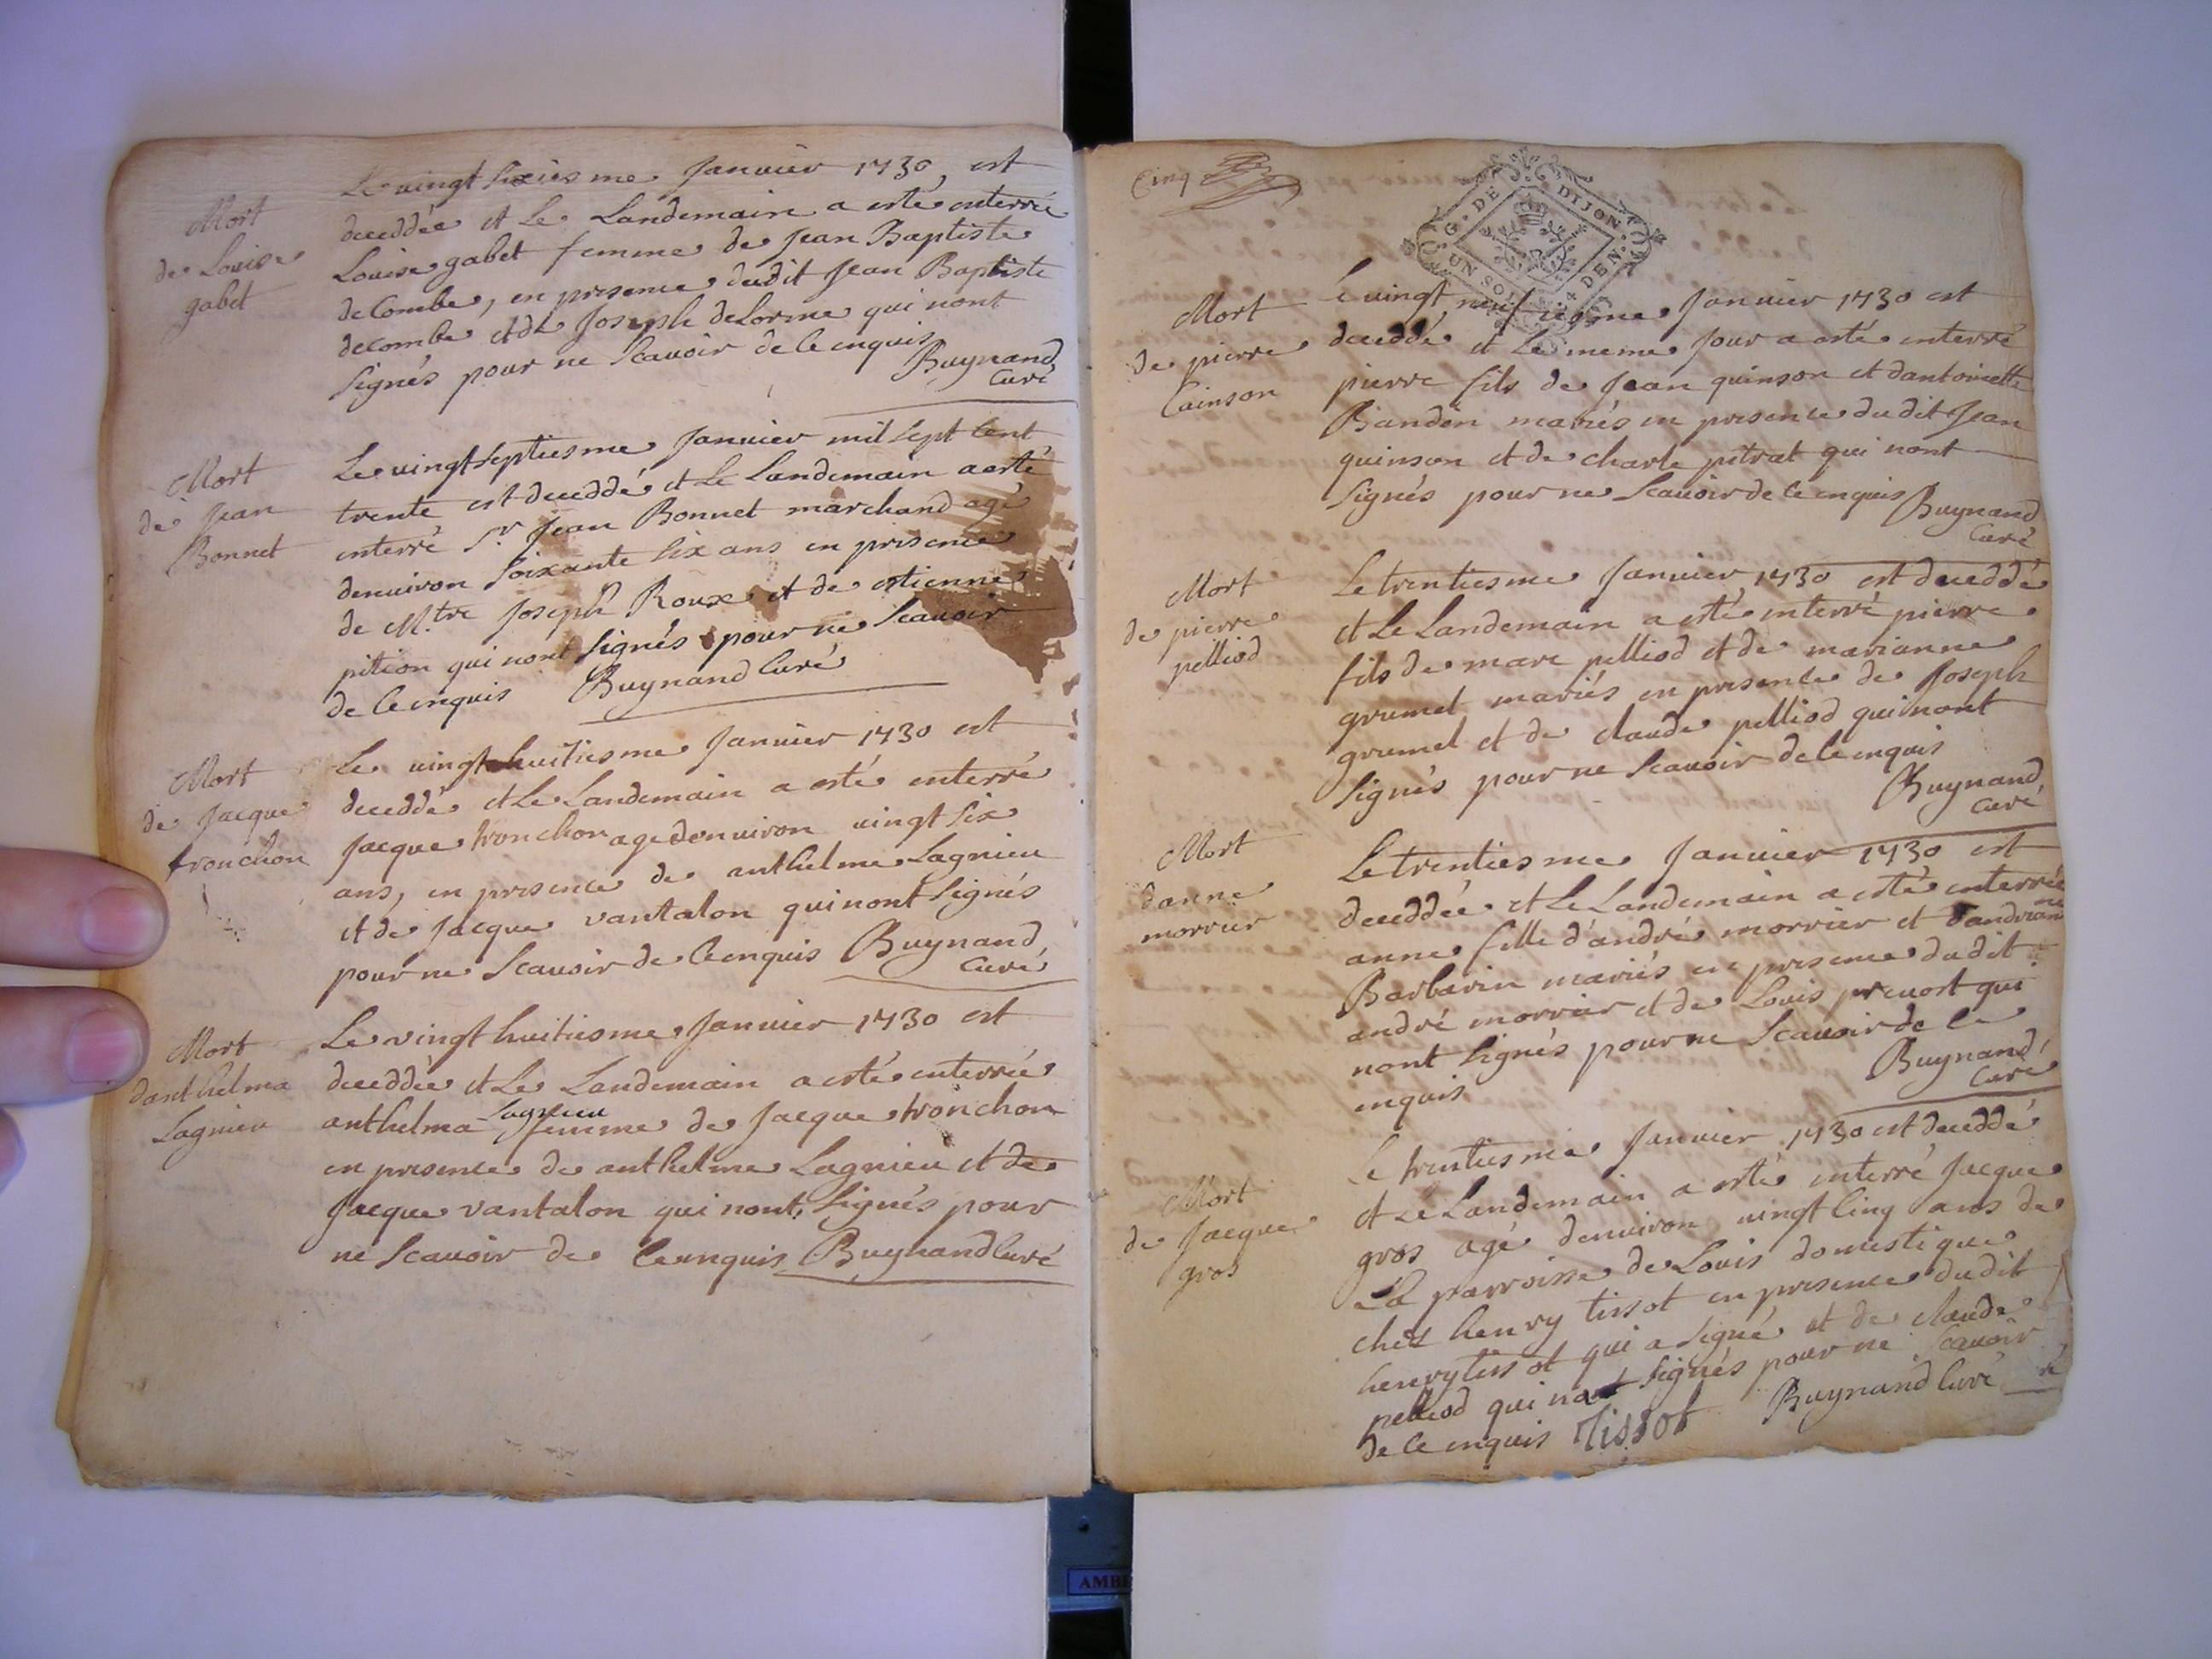 Mort
de Louise
gabet
Le vingt sixiesme Januier 1730, est
deceddée et Le Landemain a esté enterrée
Louise gabet femme de Jean Baptiste
deCombe, en presence dudit Jean Baptiste
decombe et de Joseph deLorme qui nont
signés pour ne Scauoir de ce enquis
Buynand
Curé
Mort
de Jean
Bonnet
Le vingt septiesme Januier mil sept cent
trente est deceddé et Le Landemain a esté
enterré Sr. Jean Bonnet marchand agé
denuiron soixante six ans en presence
de M.tre Joseph Roux et de estienne
pition qui nont signés pour ne Scauoir
de ce enquis Buynand Curé
Mort
de Jacque
tronchon
Le uingt huitiesme Januier 1730 est
deceddé et Le Landemain a esté enterré
Jacque tronchon age denuiron uingt six
ans, en presence de anthelme Lagnieu
et de Jacque vantalon qui nont signés
pour ne Scauoir de ce enquis Buynand
Curé
Mort
danthelma
Lagnieu
Le vingt huitiesme Januier 1730 est
deceddée et Le Landemain a esté enterrée
anthelma Lagnieu femme de Jacque tronchon
en presence de anthelme Lagnieu et de
Jacque vantalon qui nont signés pour
ne Scauoir de ce enquis Buynand Curé
Cinq
G. DE DIJON
UN SOL 4 DEN.
Mort
de pierre
Cainson
Le vingt neufuiesme Januier 1730 est
deceddé et Le meme Jour a esté enterré
pierre fils de Jean quinson et dantoinette
Biandin mariés en presence du dit Jean
quinson et de charle pitrat qui nont
signés pour ne Scauoir de ce enquis Buynand
Curé
Mort
de pierre
pelliod
Le trentiesme Januier 1730 est deceddé
et Le Landemain a esté enterré pierre
fils de marc pelliod et de marianne
grumel mariés en presence de Joseph
grumel et de claude pelliod qui nont
signés pour ne Scauoir de ce enquis
Buynand
Curé
Mort
danne
morrier
Le trentiesme Januier 1730 est
deceddée et Le Landemain a esté enterrée
anne fille d'andré morrier et dandrianne
Barbarin mariés en presence dudit
andré morrier et de Louis preuost qui
nont signés pour ne Scauoir de ce
enquis
Buynand
Curé
Mort
de Jacque
gros
Le trentiesme Januier 1730 est deceddé
et Le Landemain a esté enterré Jacque
gros agé denuiron vingt cinq ans de
La parroisse de Louis domestique
chés henry tissot en presence dudit
henry tissot qui a signé et de claude
pelliod qui na signés pour ne Scauoir
de ce enquis Tissot Buynand Curé
AMB